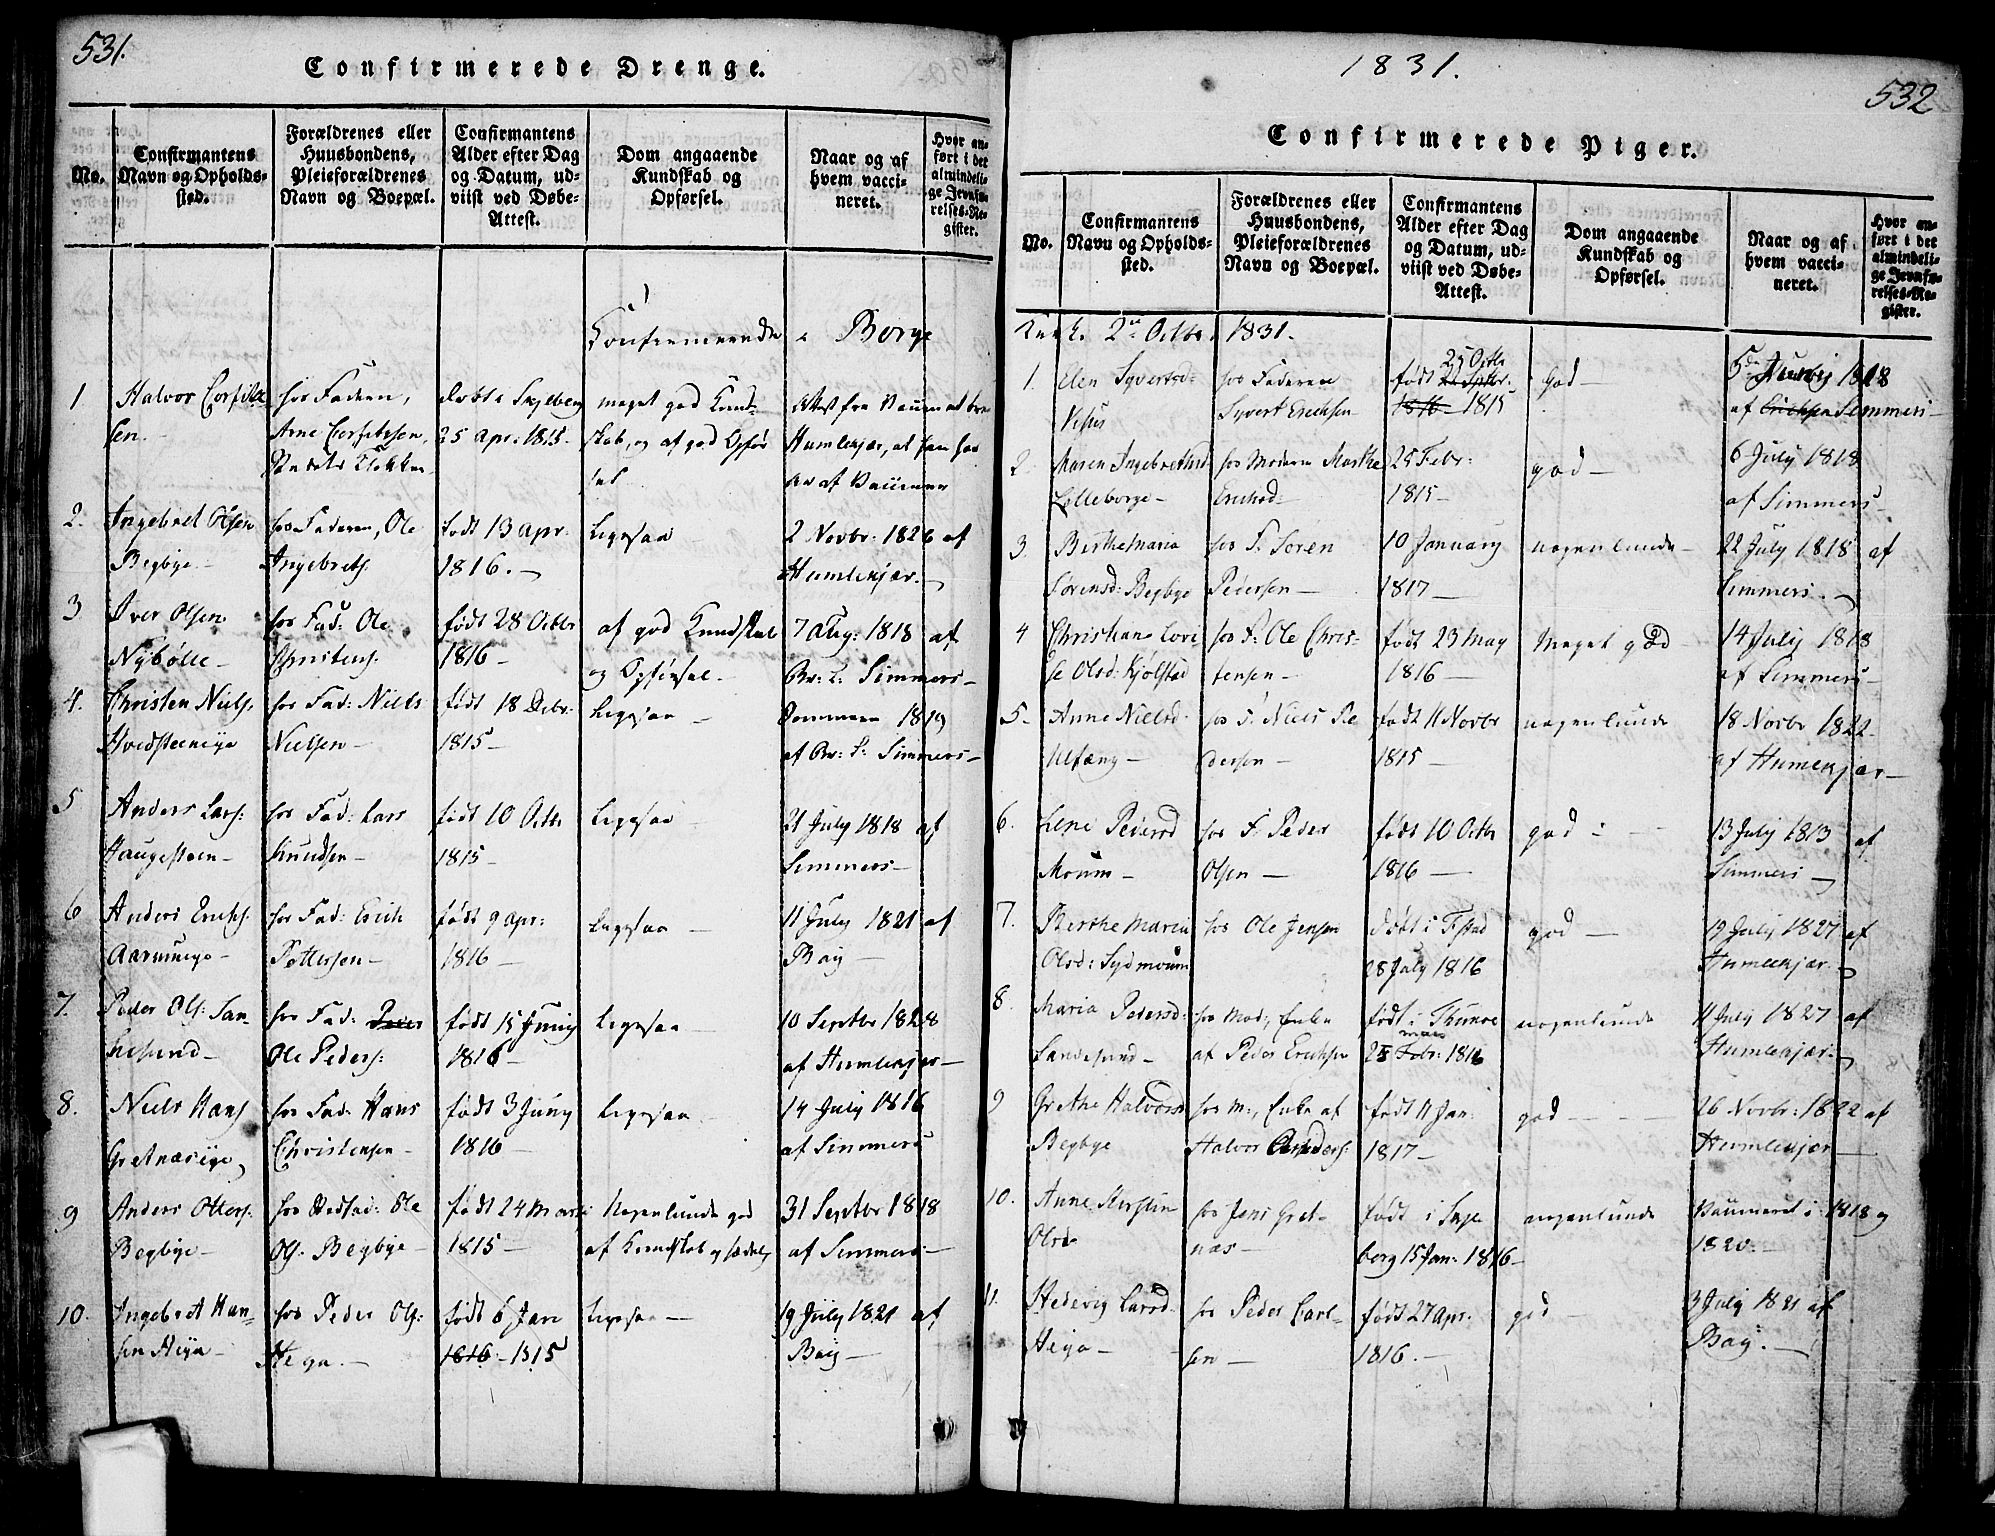 531.
Confirmerede Drenge.
No.
Confirmantens Navn og Opholds-
sted.
Forældrenes eller
Huusbondens,
Pleieforældrenes
Navn og Boepæl.
Confirmantens
Alder efter Dag
og Datum, ud-
viist ved Døbe-
Attest.
Dom angaaende
Kundskab og
Opførsel.
Naar og af
hvem vacci-
neret.
Hvor an-
ført i det
almindeli-
ge Jevnfø-
relses-Re-
gister.
Confirmerede i Borge
1 Halvor Corfitz
sen.
hos Faderen,
Arne Corfitzsen,
døbt i Skjeberg
25 Apr: 1815
meget god Kund-
skab, og af god Opfør
sel
Humlekjær, at han har
2. Ingebret Olsen
Begbye
hos Faderen, Ole
Ingebrets.
født 13 Apr.
1816.
Ligesaa
2 Novbr: 1826 af
Humlekjær.
3 Iver Olsen
Nybølle
hos Fad: Ole
Christens.
født 28 Octbr
1816
af god Kundskab
og Opførsel
7 Aug: 1818 af
Simmers
4. Christen Niels.
Hvidsteeneije
hos Fad: Niels
Nielsen
født 18 Debr:
1815
Ligesaa
Sommeren 1819
af Simmers
5 Anders Lars:
Haugesteen
hos Fad: Lars
Knudsen
født 10 Octbr
1815
Ligesaa
21 July 1818 af
Simmers
6 Anders Erichs.
hos Fad: Erich
Pettersen
født 9 Apr:
1816
Ligesaa
11 July 1821 af
Bay
7. Peder Ols: San-
desund
hos Fad: Peder
Ole Peders:
født 15 Juny
1816
Ligesaa
10 Septbr 1828
af Humlekjær
8. Niels Hans
Gretnæseije
hos Fad: Hans
Christensen
født 3 Juny
1816
Ligesaa
14 July 1816
af Simmers
9 Anders Otters.
Begbye
hos Stedfad: Ole
Ols. Begbye
født 24 Marts
1815
Nogenlunde god
af Kundskab og sædel.
31 Septbr 1818
af Simmers
10. Ingebret Han-
sen Heija
hos Peder Ols:
Heya.
født 6 Jan
1816 - 1815
Ligesaa
19 July 1821 af
Bay
1831.
532
Confirmerede Piger.
No.
Confirmantens
Navn og Opholds-
sted.
Forældrenes eller
Huusbondens,
Pleieforældrenes
Navn og Boepæl.
Confirmantens
Alder efter Dag
og Datum, ud-
viist ved Døbe-
Attest.
Dom angaaende
Kundskab og
Opførsel.
Naar og af
hvem vacci-
neret.
Hvor an-
ført i det
almindeli-
ge Jevnfø-
relses-Re-
gister.
Kirke 2den Octbr. 1831.
1. Elen Syvertsd.
hos Faderen
Syvert Erichsen
25 Octbr
født
1816 1815
god
5 July 1818
af Simmers
2. Maren Ingebrethsd
Lilleborge
hos Moderen Marthe
Erichsd.
25 Febr:
1815
god
6 July 1818
af Simmers
3. Berthe Maria
Sørensd: Begbye
hos F. Soren
Pedersen
10 January
1817
nogenlunde
22 July 1818 af
Simmers.
4 Christiane Lovi-
se Olsd: Kjølstad
hos F: Ole Chris-
tensen
født 23 May
1816
Meget god
14 July 1818
af Simmers
5. Anne Nielsd.
Ulfæng
hos F: Niels Pe
dersen
født 11 Novbr
1815
nogenlunde
18 Novbr 1822
af Humlekjær
6. Lene Pedersd
Moum
hos F. Peder
Olsen
født 10 Octbr
1816
god
13 July 1813 af
Simmers
7. Berthe Maria
Olsd: Sydmoum
hos Ole Jensen
Døbt i Fstad
28 July 1816
god
19 July 1827 af
Humlekjær.
8. Maria Pedersd:
Sandesund
hos Mod:, Enke
af Peder Erichsen
født i Thunøe
28 Febr: 1816
nogenlunde
11 July 1827 af
Humlekjær.
9 Grethe Halvorsd
Begbye
hos M:, Enke af
Halvor Anders:
født 11 Jan:
1817
god
26 Novbr: 1822 af
Humlekjær
10. Anne Kirstine
Olsd
hos Jens Gret-
næs
født i Skje
berg 15 Jan: 1816
nogenlunde
Vaccineret i 1818 og
1820.
11. Hedevig Larsd.
Heija
hos Peder Carl-
sen
født 27 Apr.
1816.
god
3 July 1821 af
Bay.